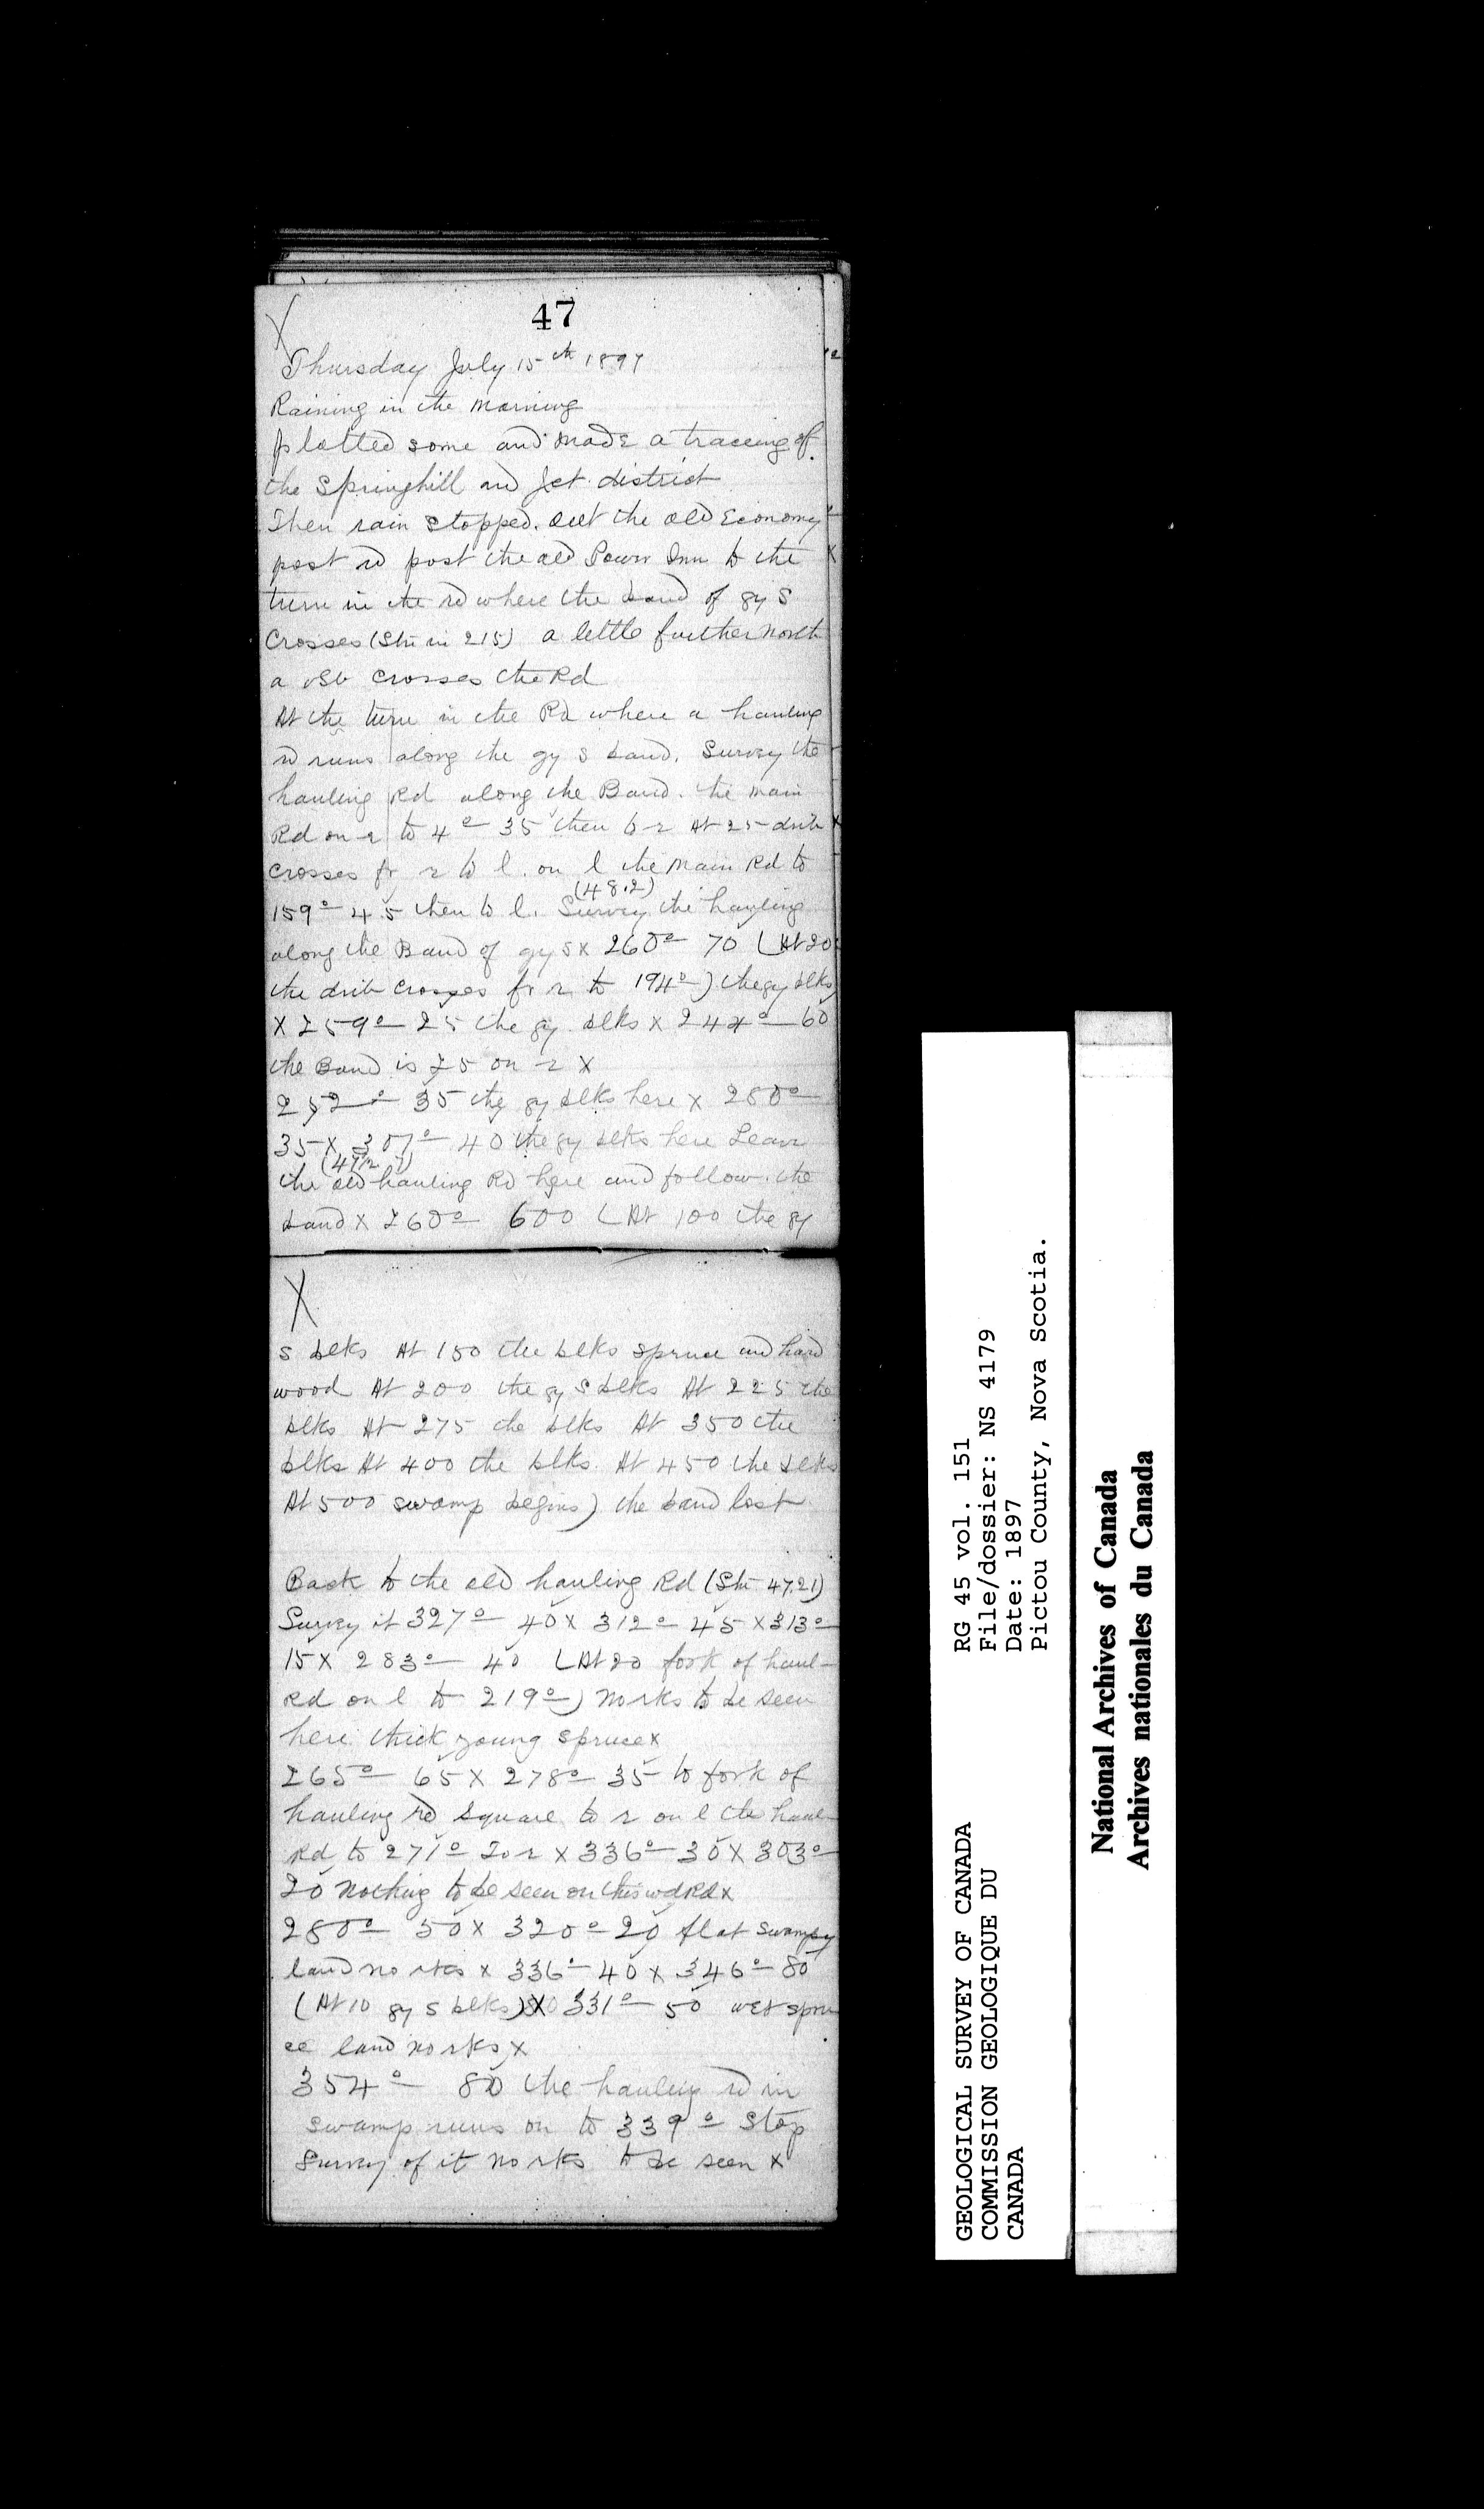 47
X
Thursday July 15th 1897
Raining in the morning
plotted some and made a traceing of
the Springhill and Jct district
Then rain stopped. out the old Economy
post rd past the old Inn to the
turn in the rd where the band of gy S
Crosses (Stn in 215) a little further north
a crosses the Rd
At the turn in the Rd where a hauling
rd runs along the gy s band. Survey the
hauling Rd along the Band. the main
Rd on r to 4° 35 then to r At 25 drib
crosses fr r to l. on l the main Rd to
(48.2)
159° 45 then to l. Survey the hauling
along the Band of gy s x 260° 70 (At 20
the drib crosses fr r to 194°) the gy blks
X 259° 25 the gy blks x 244° 60
the Band is 25 on r X
252° 35 the gy blks here x 280°
35 X 307° 40 the gy blks here Leave
the old hauling Rd here and follow the
band X 260° 600 (At 100 the gy
X
s blks At 150 the blks spruce and hard
wood At 200 the gy s blks At 225 the
blks At 275 the blks At 350 the
blks At 400 the blks. At 450 the blks
At 500 swamp begins) the band lost
Back to the old hauling Rd (Stn 47.21)
Survey it 327° 40 X 312° 45 X 313°
15 X 283° 40 (At 20 fork of haul-
Rd on l to 219°) no rks to be seen
here thick young spruce x
265° 65 X 278° 35 to fork of
hauling rd square to r on l the haul-
Rd to 271° To r X 336° 30 X 303°
20 nothing to be seen on this wd Rd x
280° 50 X 320° 20 flat swampy
land no rks x 336° 40 x 346° 80
(At 10 gy s blks) X 331° 50 wet spru
ce land no rks x
354° 80 the hauling rd in
swamp runs on to 339° Stop
Survey of it no rks to be seen x
GEOLOGICAL SURVEY OF CANADA
COMMISSION GEOLOGIQUE DU
CANADA
RG 45 vol. 151
File/dossier: NS 4179
Date: 1897
Pictou County, Nova Scotia.
National Archives of Canada
Archives nationales du Canada